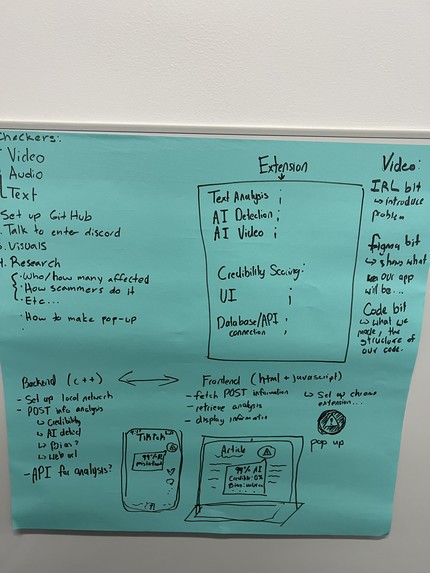 Checkers:
Video
Audio
Text
Set up GitHub
Talk to enter discord
Visuals
Research
Who/how many affected
How scammers do it
Etc...
How to make pop-up
Extension
Text Analysis ;
AI Detection ;
AI Video ;
Credibility Scoring:
UI ;
Database/API ;
connection
Video:
IRL bit
↳ introduce
problem
Figma bit
↳ shows what
our app
will be...
Code bit
↳ what we
made, the
structure of
our code.
Backend (c++) ⟷ Frontend (html + javascript)
- Set up local network
- POST info analysis
↳ Credibility
↳ AI detect
↳ Bias?
↳ web url
- API for analysis?
- fetch POST information
- retrieve analysis
- display information
↳ Set up chrome
extension...
pop up
TikTok
99% AI
Article
99% AI
Credible: 0%